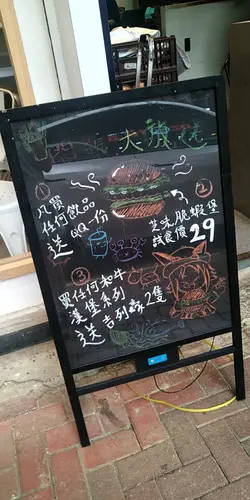 大優惠
①
凡買
任何飲品
送QQ一份
②
芝味脆蝦堡
試食價29
③
買任何和牛
漢堡系列
送吉列蠔2隻